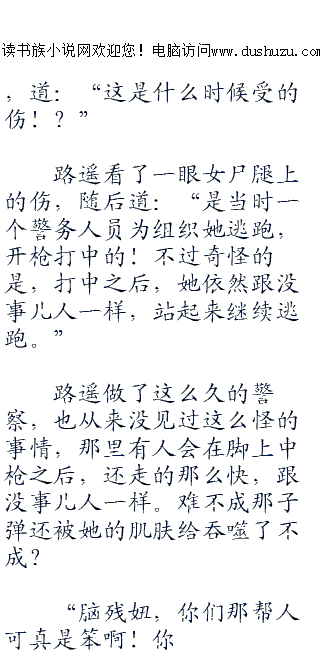 读书族小说网欢迎您！电脑访问www.dushuzu.com
，道：“这是什么时候受的
伤！？”
路遥看了一眼女尸腿上
的伤，随后道：“是当时一
个警务人员为组织她逃跑，
开枪打中的！不过奇怪的
是，打中之后，她依然跟没
事儿人一样，站起来继续逃
跑。”
路遥做了这么久的警
察，也从来没见过这么怪的
事情，那里有人会在脚上中
枪之后，还走的那么快，跟
没事儿人一样。难不成那子
弹还被她的肌肤给吞噬了不
成？
“脑残妞，你们那帮人
可真是笨啊！你